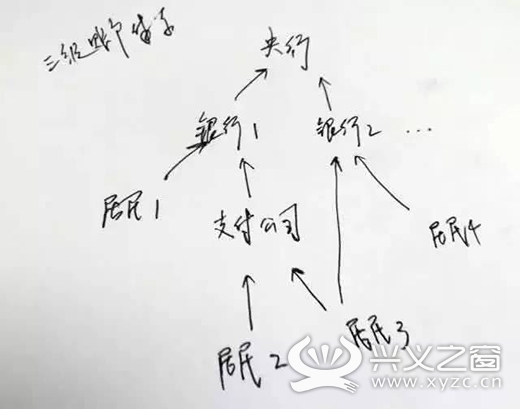 三级账户体系
央行
银行1
银行2 ...
居民1
支付公司
居民4
居民2
居民3
兴义之窗
www.xyzc.cn